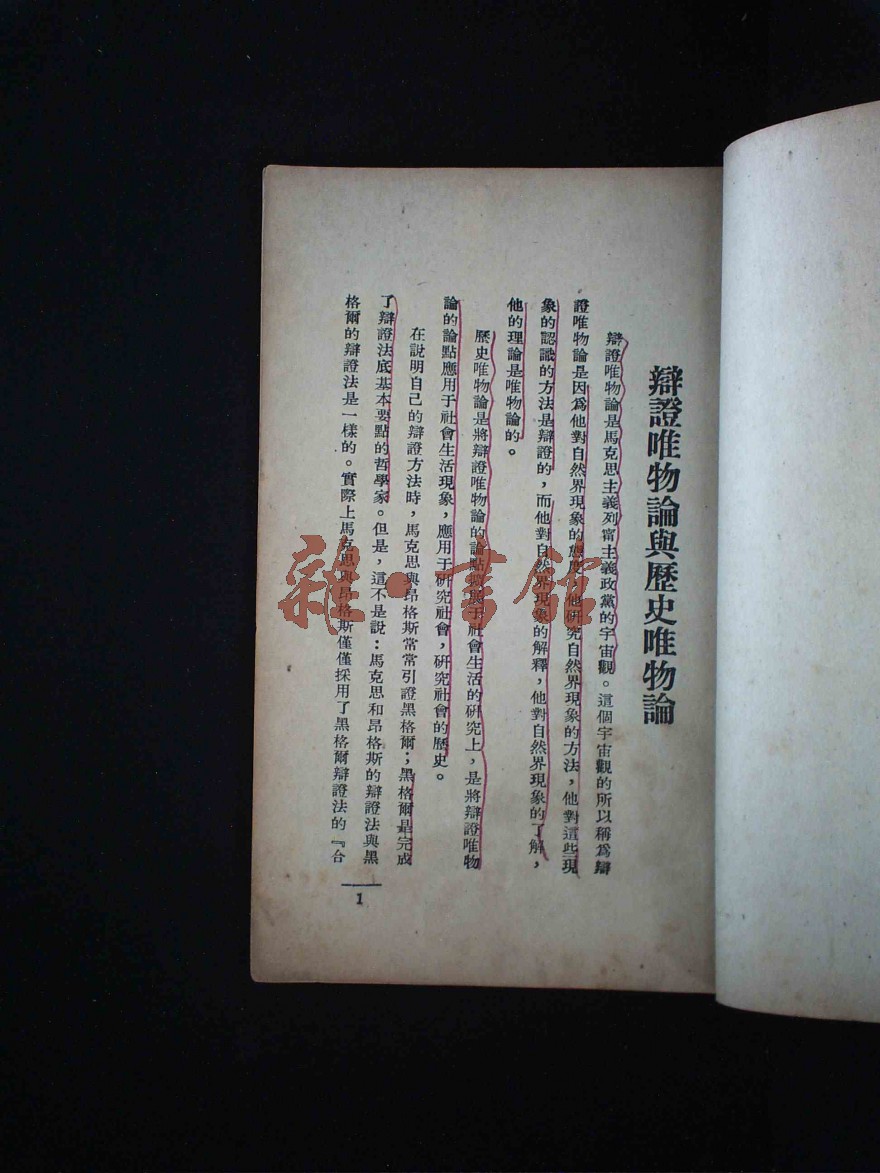 辯證唯物論與歷史唯物論
辯證唯物論是馬克思主義列甯主義政黨的宇宙觀。這個宇宙觀的所以稱爲辯
證唯物論是因爲他對自然界現象的態度，他硏究自然界現象的方法，他對這些現
象的認識的方法是辯證的，而他對自然界現象的解釋，他對自然界現象的了解，
他的理論是唯物論的。
歷史唯物論是將辯證唯物論的論點擴展于社會生活的硏究上，是將辯證唯物
論的論點應用于社會生活現象，應用于硏究社會，硏究社會的歷史。
在說明自己的辯證方法時，馬克思與昂格斯常常引證黑格爾；黑格爾是完成
了辯證法底基本要點的哲學家。但是，這不是說：馬克思和昂格斯的辯證法與黑
格爾的辯證法是一樣的。實際上馬克思與昂格斯僅僅採用了黑格爾辯證法的『合
1
雜·書館